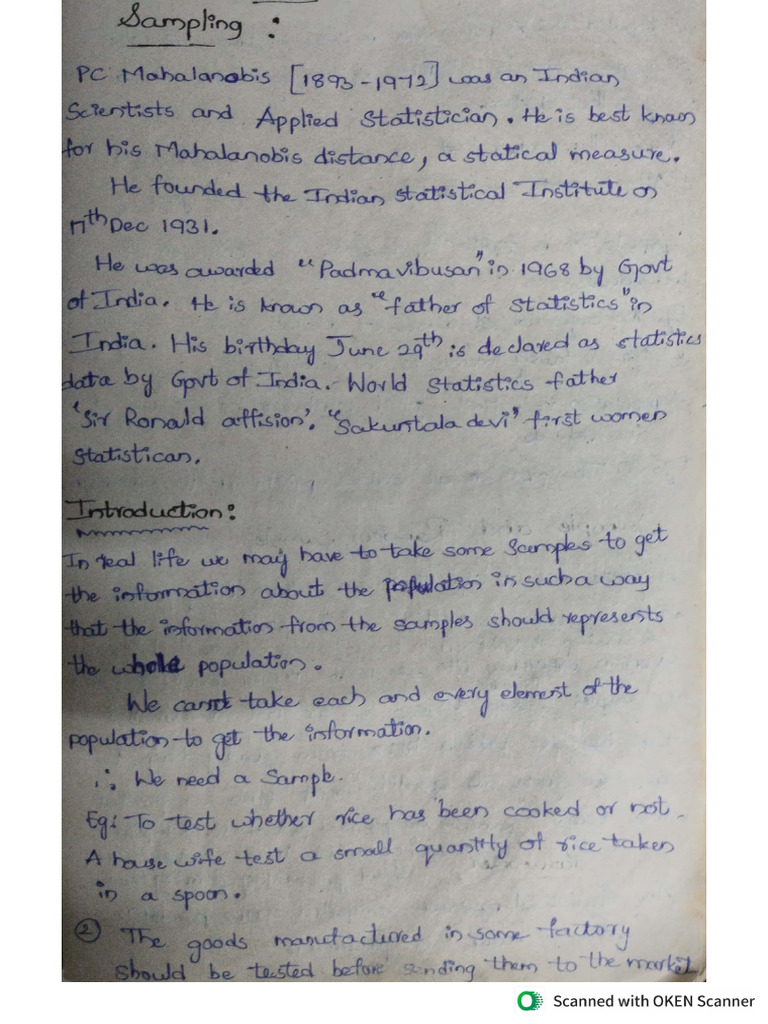 Sampling :
PC Mahalanobis [1893-1972] was an Indian
Scientists and Applied Statistician. He is best known
for his Mahalanobis distance, a statical measure.
He founded the Indian Statistical Institute on
17th Dec 1931.
He was awarded "Padmavibusan" in 1968 by Govt
of India. He is known as "father of statistics" in
India. His birthday June 29th is declared as statistics
data by Govt of India. World Statistics father
'Sir Ronald affision'. "Sakuntala devi" first women
Statistican.
Introduction:
In real life we may have to take some Samples to get
the information about the population in such a way
that the information from the samples should represents
the whole population.
We cannot take each and every element of the
population to get the information.
∴ We need a Sample.
Eg: To test whether rice has been cooked or not.
A house wife test a small quantity of rice taken
in a spoon.
② The goods manufactured in some factory
should be tested before sending them to the market
Scanned with OKEN Scanner